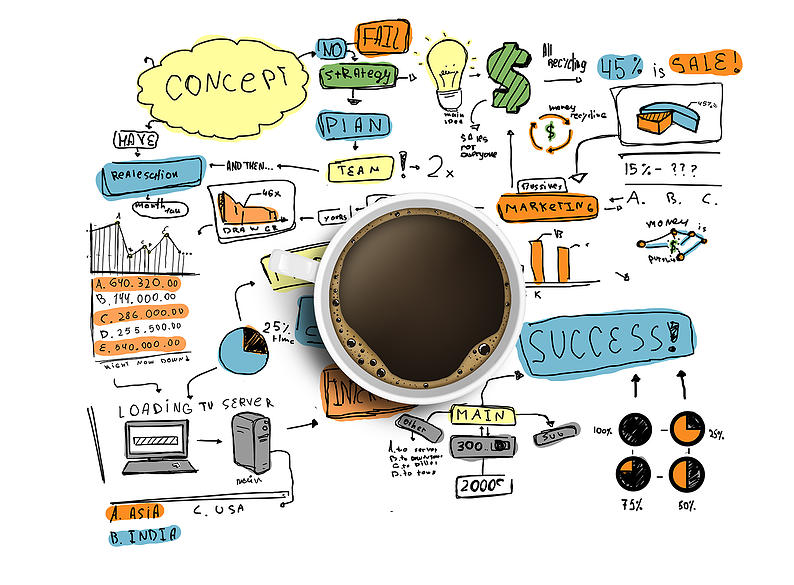 CONCEPT
NO
FAIL
STRATEGY
PLAN
TEAM
! 2x
AND THEN...
HAVE
REALESCTION
main
idea
$
All
RECYCLING
SALES
NOT
EVERYONE
money
recycline
$
45% is SALE!
45%
15% - ???
A. B. C.
MARKETING
MONEY is
46%
DRAW GR
years
A. 640.320.00
B. 144.000.00
C. 286.000.00
D. 255.500.00
E. 540.000.00
RIGHT NOW DOWN!
25%
time
K
SUCCESS!
LOADING TV SERVER
main
A. ASIA
B. INDIA
C. USA
MAIN
Other
SUB
300
2000$
A. to server
100%
25%
75%
50%